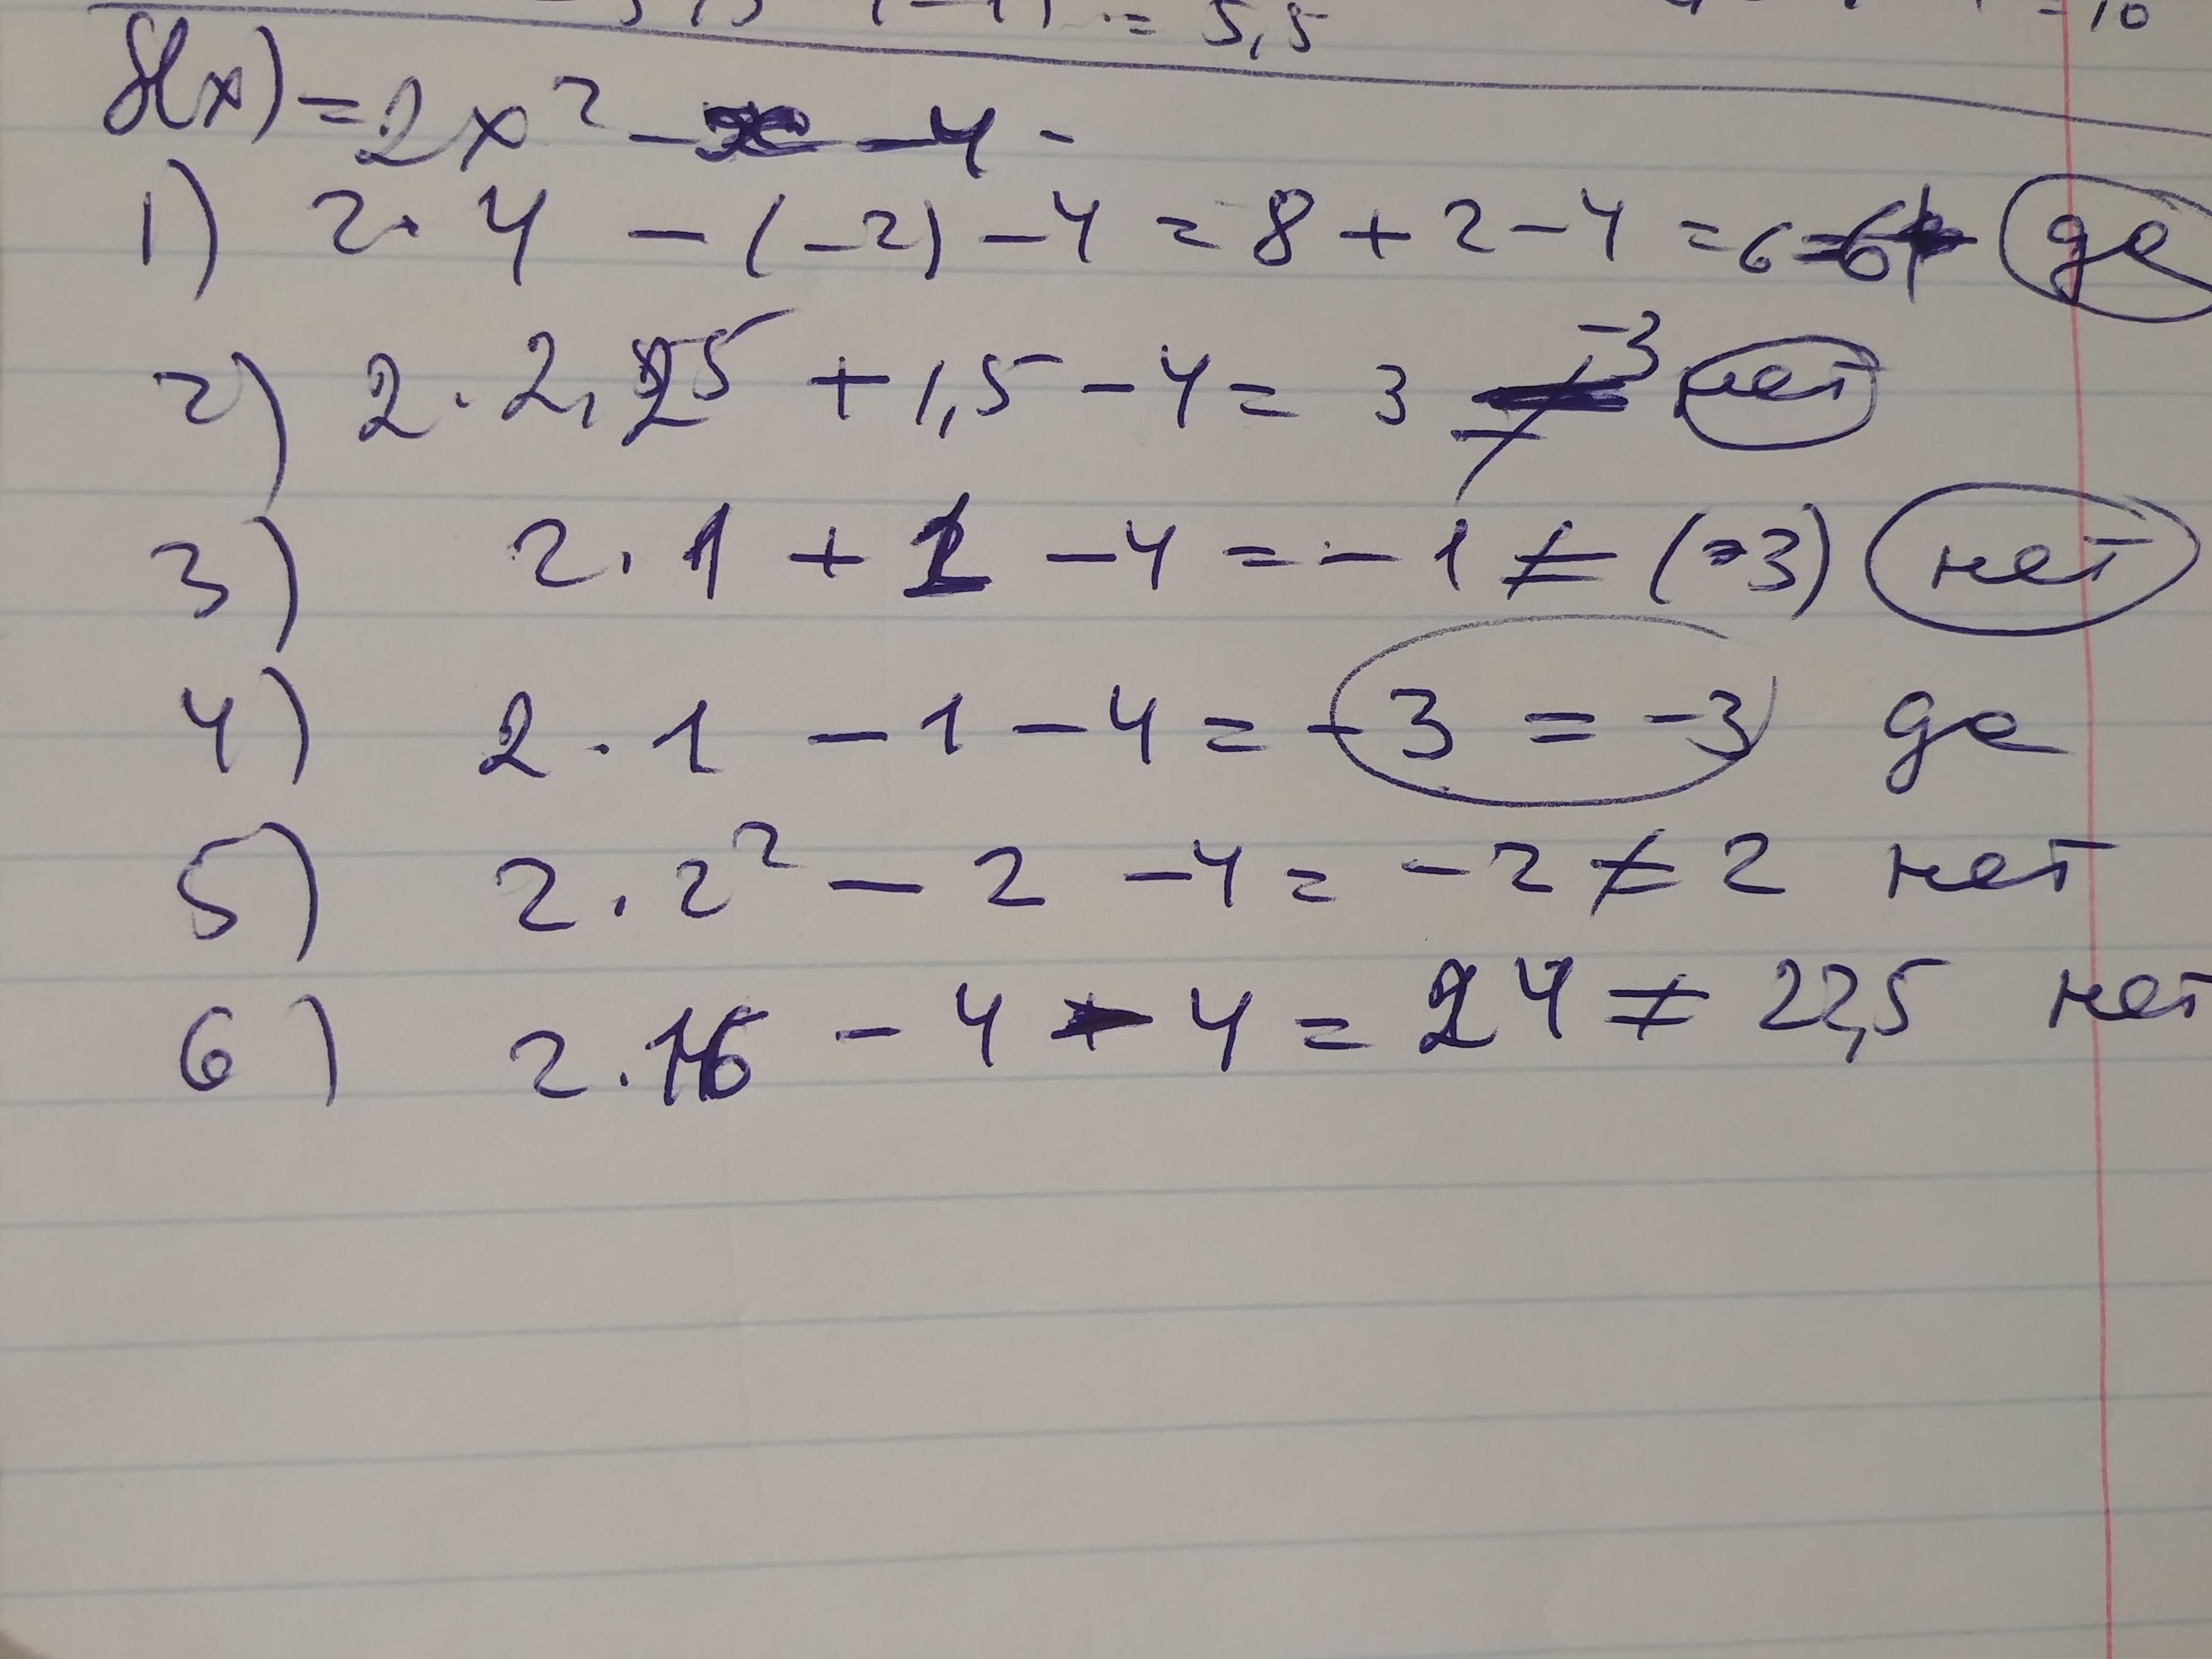 = 5,5 = 10
f(x) = 2x² - x - 4 -
1) 2 · 4 - (-2) - 4 = 8 + 2 - 4 = 6 = 6 да
2) 2 · 2,25 + 1,5 - 4 = 3 ≠ -3 нет
3) 2 · 1 + 1 - 4 = - 1 ≠ (-3) нет
4) 2 · 1 - 1 - 4 = -3 = -3 да
5) 2 · 2² - 2 - 4 = -2 ≠ 2 нет
6) 2 · 16 - 4 - 4 = 24 ≠ 22,5 нет